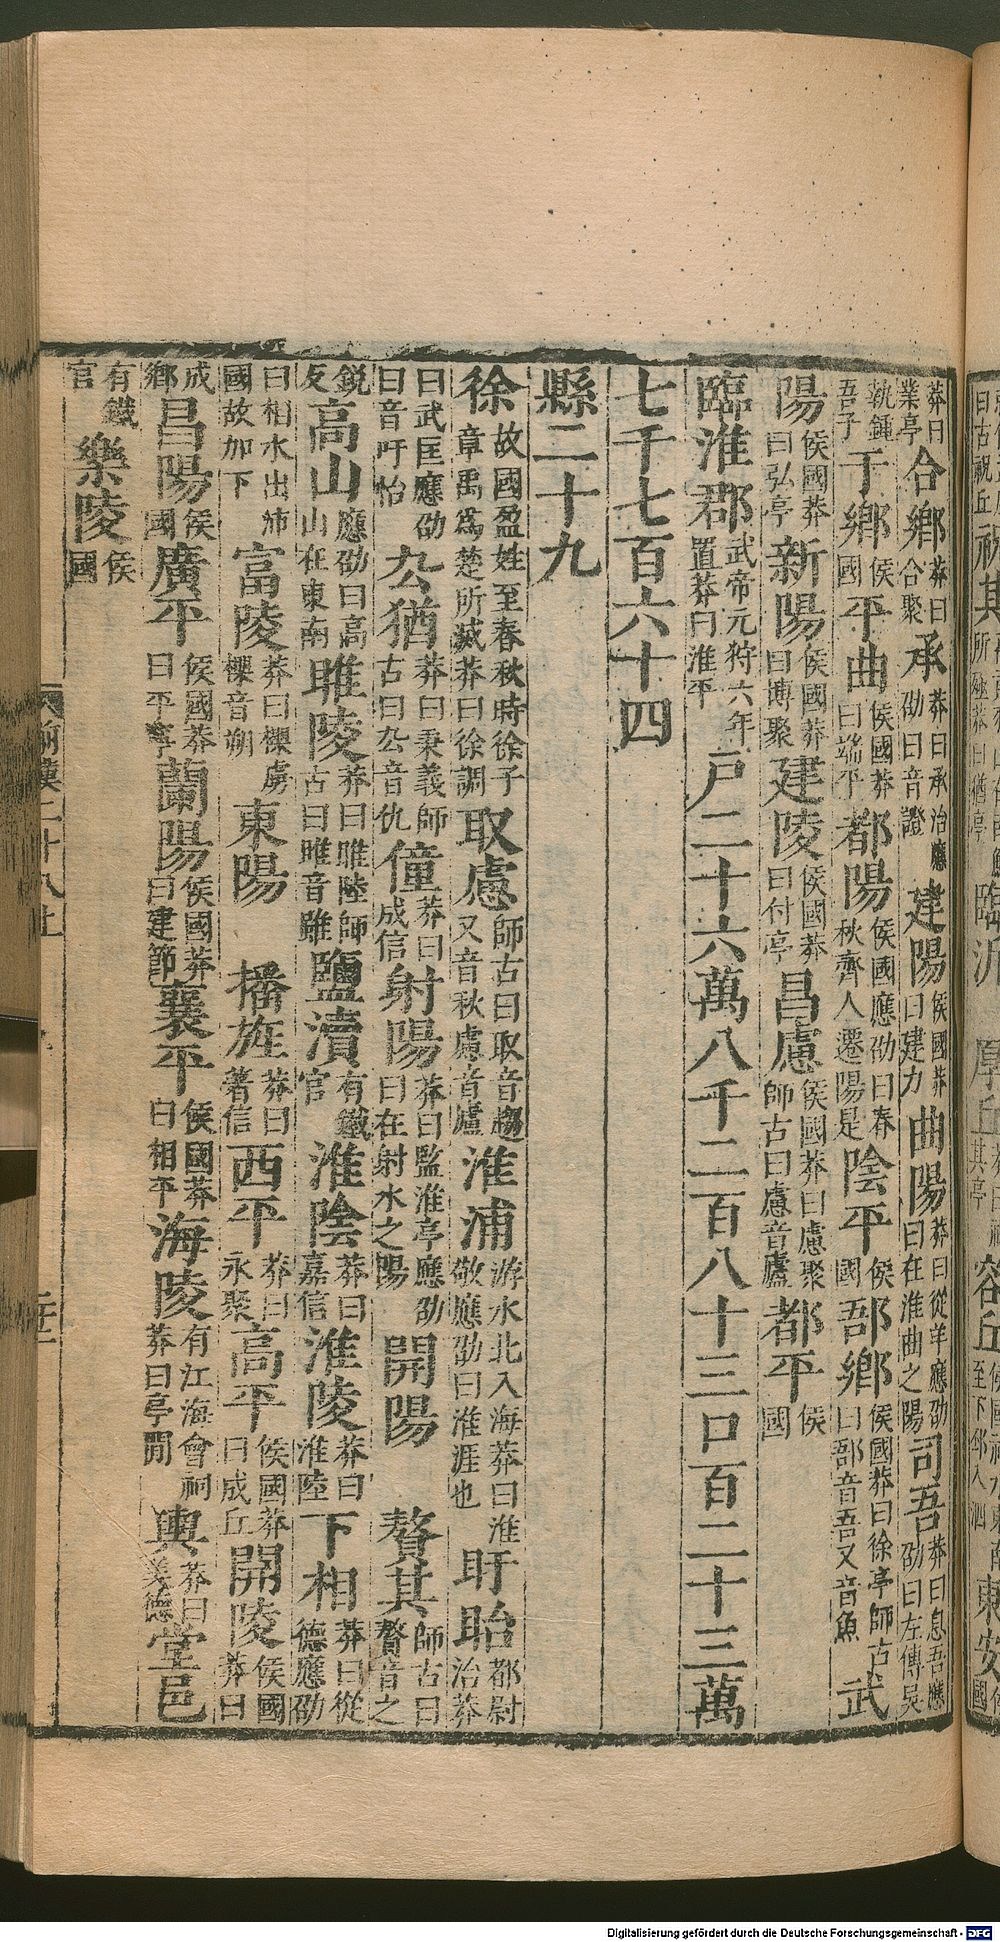 莽曰業亭合鄉莽曰合聚承莽曰承治應劭曰音證建陽侯國莽曰建力曲陽莽曰從羊應劭曰在淮曲之陽司吾莽曰息吾應劭曰左傳吳
執鍾吾子于鄉侯國平曲侯國莽曰端平都陽侯國應劭曰春秋齊人遷陽是陰平侯國郚鄉侯國莽曰徐亭師古曰郚音吾又音魚武
陽侯國莽曰弘亭新陽侯國莽曰博聚建陵侯國莽曰付亭昌慮侯國莽曰慮聚師古曰慮音廬都平侯國
臨淮郡武帝元狩六年置莽曰淮平戶二十六萬八千二百八十三口百二十三萬
七千七百六十四
縣二十九
徐故國盈姓至春秋時徐子章禹為楚所滅莽曰徐調取慮師古曰取音趨又音秋慮音廬淮浦游水北入海莽曰淮敬應劭曰淮涯也盱眙都尉治莽
曰武匡應劭曰音吁怡厹猶莽曰秉義師古曰厹音仇僮莽曰成信射陽莽曰監淮亭應劭曰在射水之陽開陽贅其師古曰贅音之
銳反高山應劭曰高山在東南睢陵莽曰睢陸師古曰睢音雖鹽瀆有鐵官淮陰莽曰嘉信淮陵莽曰淮陸下相莽曰從德應劭
曰相水出沛國故加下富陵莽曰㯤虜㯤音朔東陽播旌莽曰著信西平莽曰永聚高平侯國莽曰成丘開陵侯國莽曰
成鄉昌陽侯國廣平侯國莽曰平亭蘭陽侯國莽曰建節襄平侯國莽曰相平海陵有江海會祠莽曰亭閒輿莽曰美德堂邑
有鐵官樂陵侯國
前漢二十八上
二十一
Digitalisierung gefördert durch die Deutsche Forschungsgemeinschaft - DFG